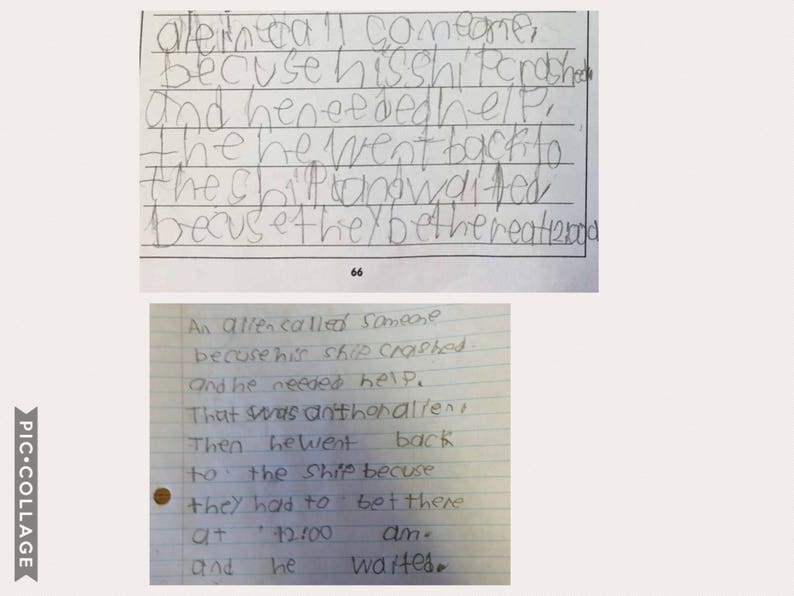 aleincall someone,
becusehisshipcrashed
and heneededhelp.
the hewentbackto
theshipandwaited
becusetheybethereat12:00a
66
An aliencalled someone
becusehis ship crashed.
andhe needed help.
That was anthoralien.
Then hewent back
to the ship becuse
they had to bet there
at 12:00 am.
and he waited.
PIC•COLLAGE